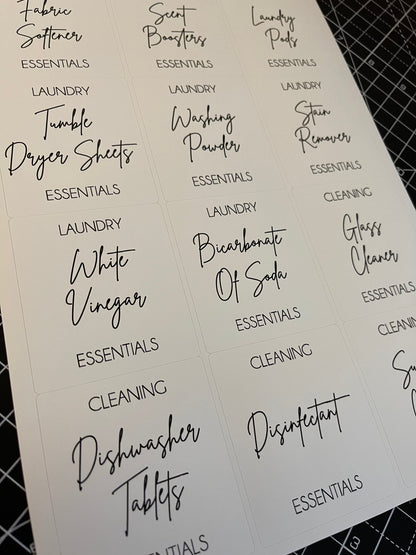 Fabric
Softener
ESSENTIALS
Scent
Boosters
ESSENTIALS
Laundry
Pods
ESSENTIALS
LAUNDRY
Tumble
Dryer Sheets
ESSENTIALS
LAUNDRY
Washing
Powder
ESSENTIALS
LAUNDRY
Stain
Remover
ESSENTIALS
LAUNDRY
White
Vinegar
ESSENTIALS
LAUNDRY
Bicarbonate
Of Soda
ESSENTIALS
CLEANING
Glass
Cleaner
ESSENTIALS
CLEANING
Dishwasher
Tablets
CLEANING
Disinfectant
ESSENTIALS